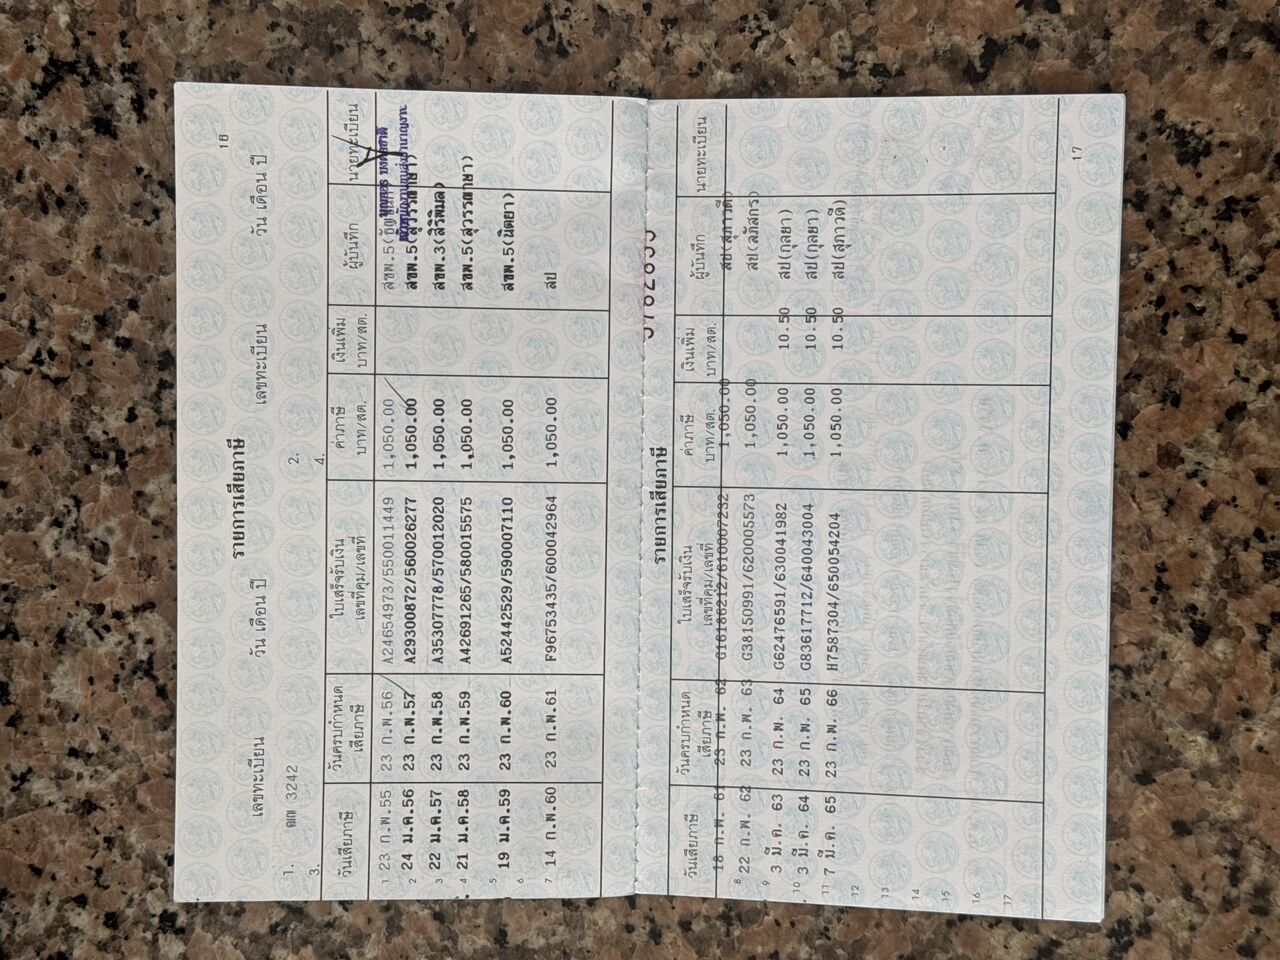 16
รายการเสียภาษี
เลขทะเบียน วัน เดือน ปี เลขทะเบียน วัน เดือน ปี
1. ฌณ 3242 2.
3. 4.
วันเสียภาษี วันครบกำหนดเสียภาษี ใบเสร็จรับเงิน เลขที่คุม/เลขที่ ค่าภาษี บาท/สต. เงินเพิ่ม บาท/สต. ผู้บันทึก นายทะเบียน
1 23 ก.พ.55 23 ก.พ.56 A24654973/550011449 1,050.00 สขพ.5
2 24 ม.ค.56 23 ก.พ.57 A29300872/560026277 1,050.00 สขพ.5(สุวรรณาษา)
3 22 ม.ค.57 23 ก.พ.58 A35307778/570012020 1,050.00 สขพ.3(สิริพิมล)
4 21 ม.ค.58 23 ก.พ.59 A42691265/580015575 1,050.00 สขพ.5(สุวรรณาษา)
5 19 ม.ค.59 23 ก.พ.60 A52442529/590007110 1,050.00 สขพ.5(นิตยา)
6
7 14 ก.พ.60 23 ก.พ.61 F96753435/600042964 1,050.00 สป
รายการเสียภาษี
วันเสียภาษี วันครบกำหนดเสียภาษี ใบเสร็จรับเงิน เลขที่คุม/เลขที่ ค่าภาษี บาท/สต. เงินเพิ่ม บาท/สต. ผู้บันทึก นายทะเบียน
18 ก.พ. 61 23 ก.พ. 62 G16186212/610007232 1,050.00 สป(สุภาวดี)
8 22 ก.พ. 62 23 ก.พ. 63 G38150991/620005573 1,050.00 สป(สภัสกร)
9 3 มี.ค. 63 23 ก.พ. 64 G62476591/630041982 1,050.00 10.50 สป(กุลยา)
10 3 มี.ค. 64 23 ก.พ. 65 G83617712/640043004 1,050.00 10.50 สป(กุลยา)
11 7 มี.ค. 65 23 ก.พ. 66 H7587304/650054204 1,050.00 10.50 สป(สุภาวดี)
12
13
14
15
16
17
17